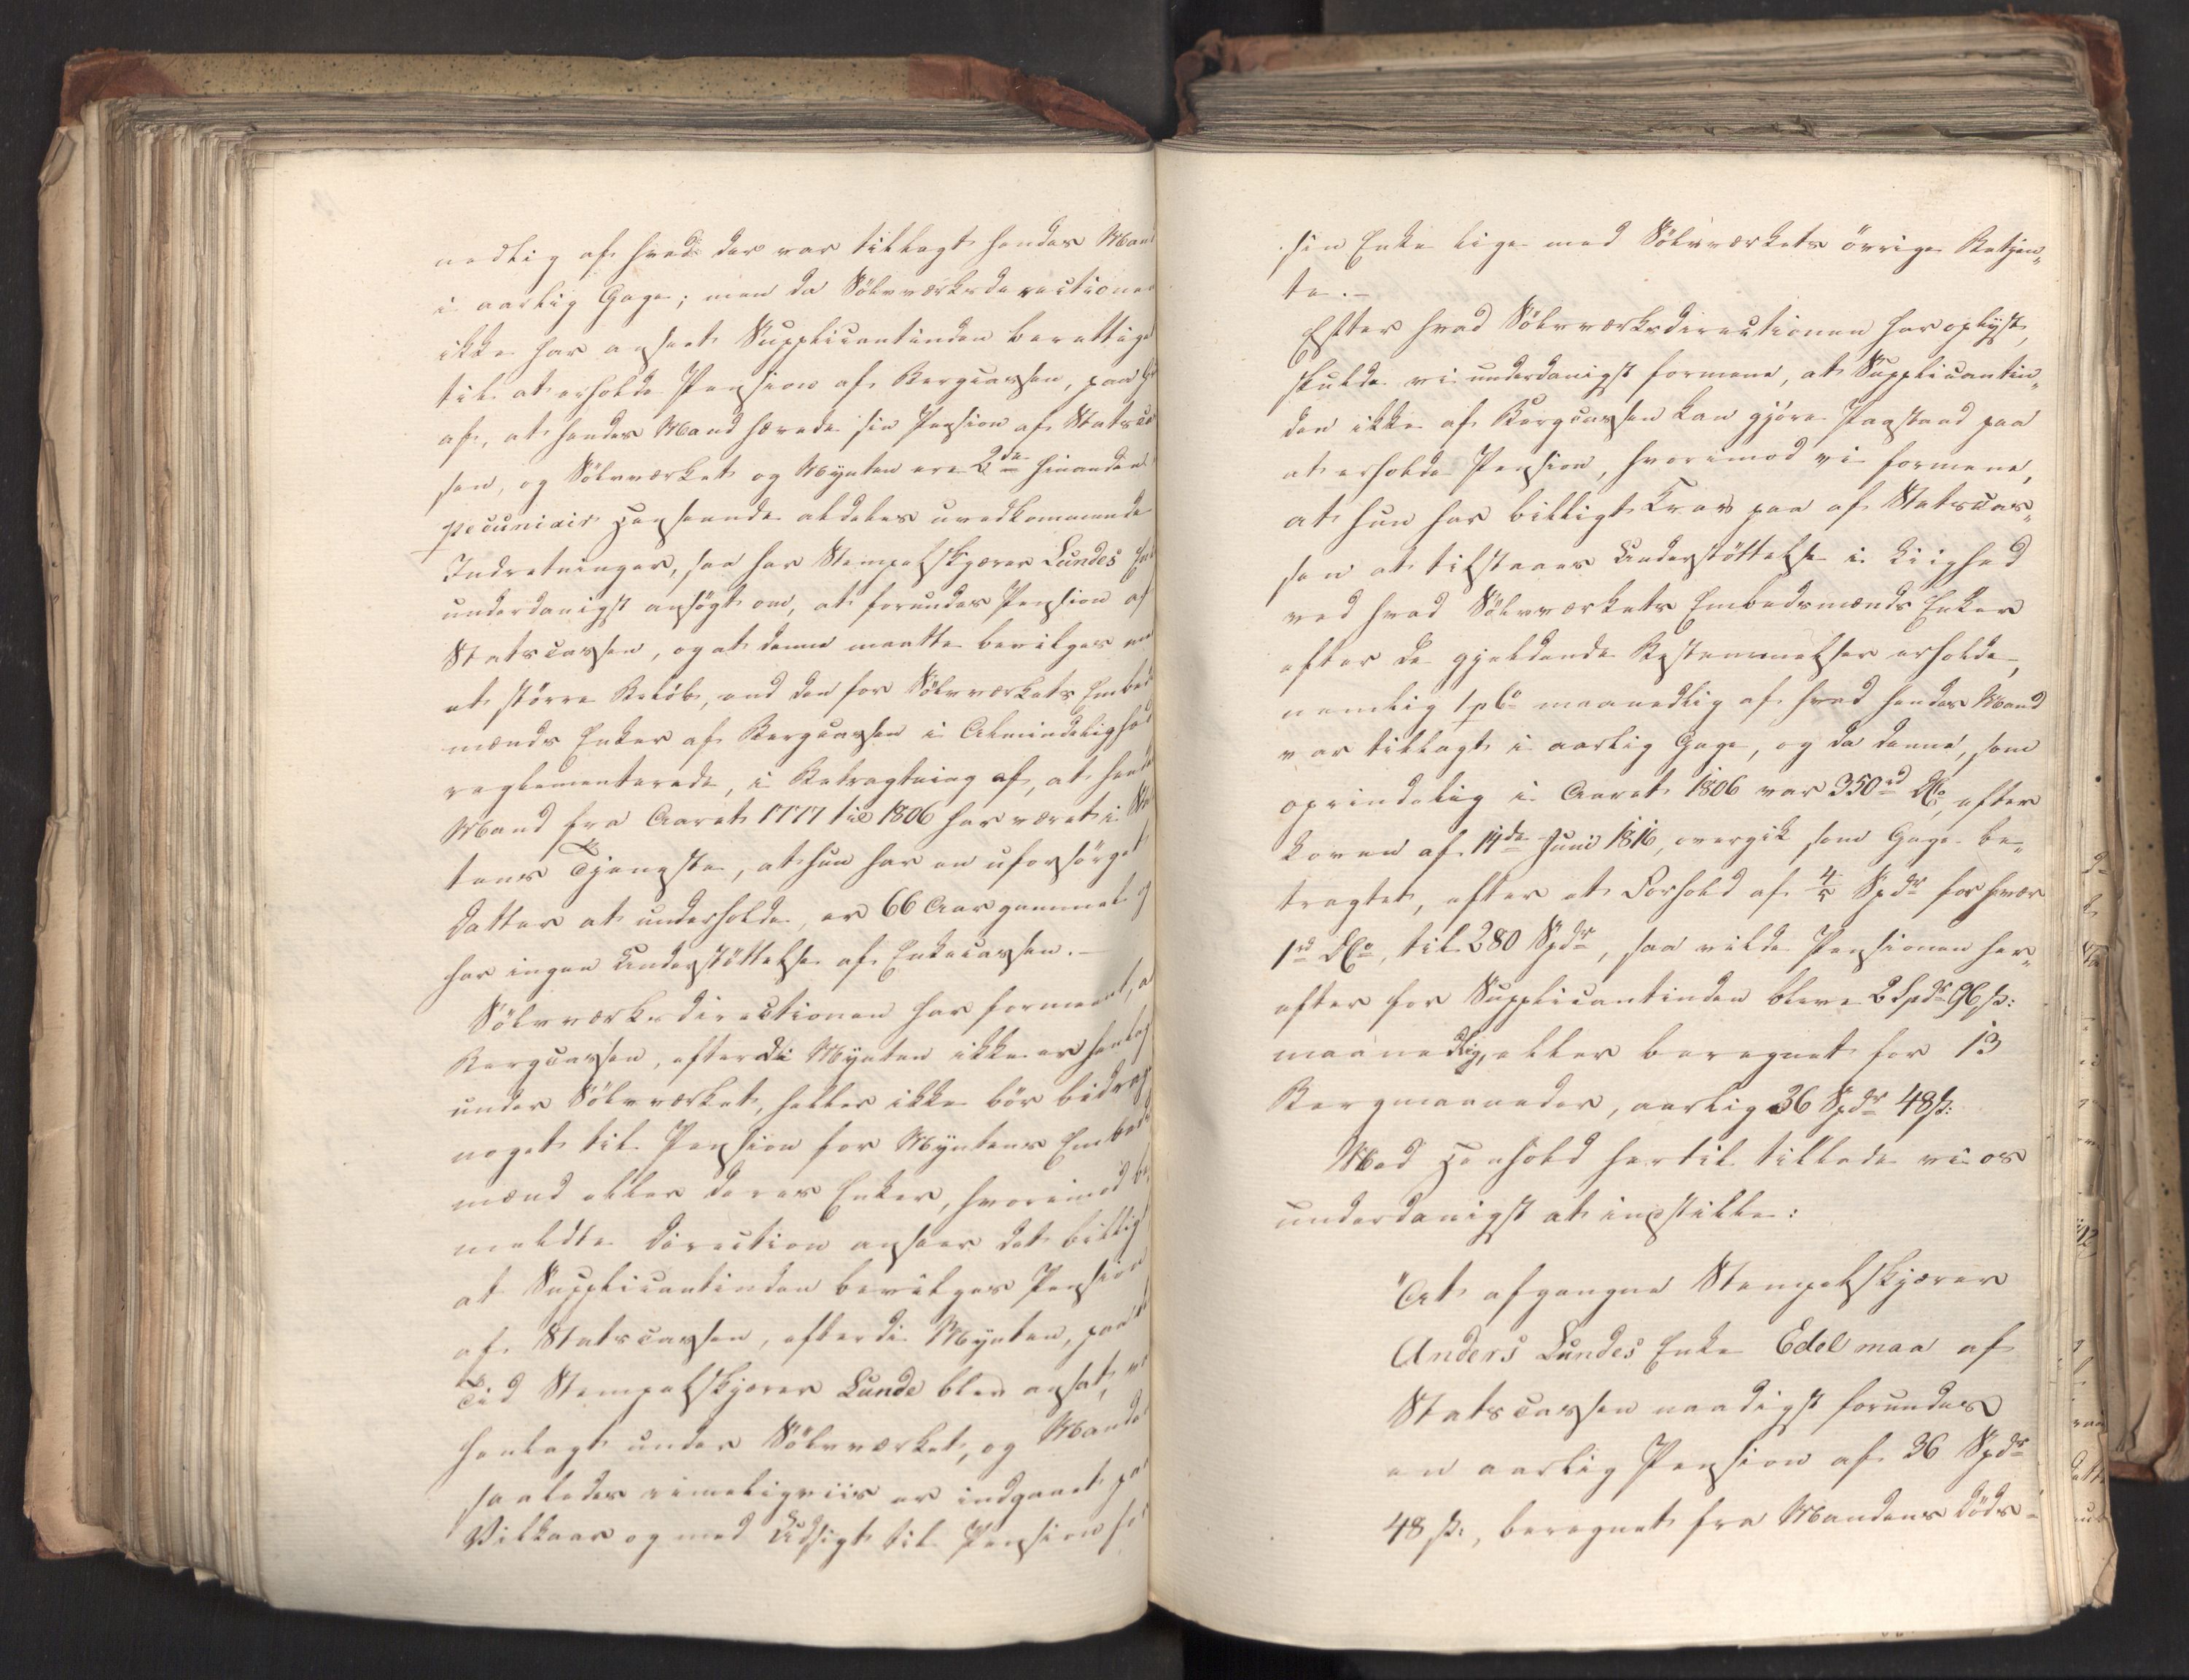 nedlig af hvad der var tillagt hendes Mand
i aarlig Gage; men da Sölvværksdirectionen
ikke har anseet Supplicantinden berettiget
til at erholde Pension af Bergcassen, paa Gr
af, at hendes Mand hævede sin Pension af Statscas
sen, og Sölvværket og Mynten ere 2de hinanden
pecuniair Henseende aldeles uvedkommende
Indretninger, saa har Stempelskjærer Lundes Enke
underdanigst ansögt om, at forundes Pension af
Statscassen, og at denne maatte bevilges med
et större Belöb, end den for Sölvværkets Embeds
mænds Enker af Bergcassen i Almindelighed
reglementerede, i Betragtning af, at hendes
Mand fra Aaret 1777 til 1806 har været i Sta
tens Tjeneste, at hun har en uforsörget
Datter at underholde, er 66 Aar gammel og
har ingen Understöttelse af Enkecassen.-
Sölvværksdirectionen har formeent, at
Bergcassen, efterdi Mynten ikke er henlagt
under Sölvværket, heller ikke bör bidrage
noget til Pension for Myntens Embeds
mænd eller deres Enker, hvorimod be
meldte Direction anseer det billigt
at Supplicantinden bevilges Pension
af Statscassen, efterdi Mynten, paa den
Tid Stempelskjærer Lunde blev ansat, var
henlagt under Sölvværket, og Manden
saaledes rimeligviis er indgaaet paa
Vilkaar og med Udsigt til Pension for
sin Enke lige med Sölvværkets övrige Betjen„
te.-
Efter hvad Sölvværksdirectionen har oplyst,
skulde vi underdanigst formene, at Supplicantin„
den ikke af Bergcassen kan gjöre Paastand paa
at erholde Pension, hvorimod vi formene,
at hun har billigt Krav paa af Statscas„
sen at tilstaaes Understöttelse i Liighed
med hvad Sölvværkets Embedsmænds Enker
efter de gjeldende Bestemmelser erholde,
nemlig 1 pCo maanedlig af hvad hendes Mand
var tillagt i aarlig Gage, og da denne, som
oprindelig i Aaret 1806 var 350 rd DCo, efter
Loven af 14de Juni 1816, overgik som Gage be„
tragtet, efter et Forhold af 4/5 Spdr for hver
1 rd DCo, til 280 Spdr, saa vilde Pensionen her„
efter for Supplicantinden blive 2 Spdr 96 s:
maanedlig, eller beregnet for 13
Bergmaaneder, aarlig 36 Spdr 48 s:
Med Henhold hertil tillade vi os
underdanigst at indstille:
"At afgangne Stempelskjærer
Anders Lundes Enke Edel maa af
Statscassen naadigst forundes
en aarlig Pension af 36 Spdr
48 s:, beregnet fra Mandens Döds-